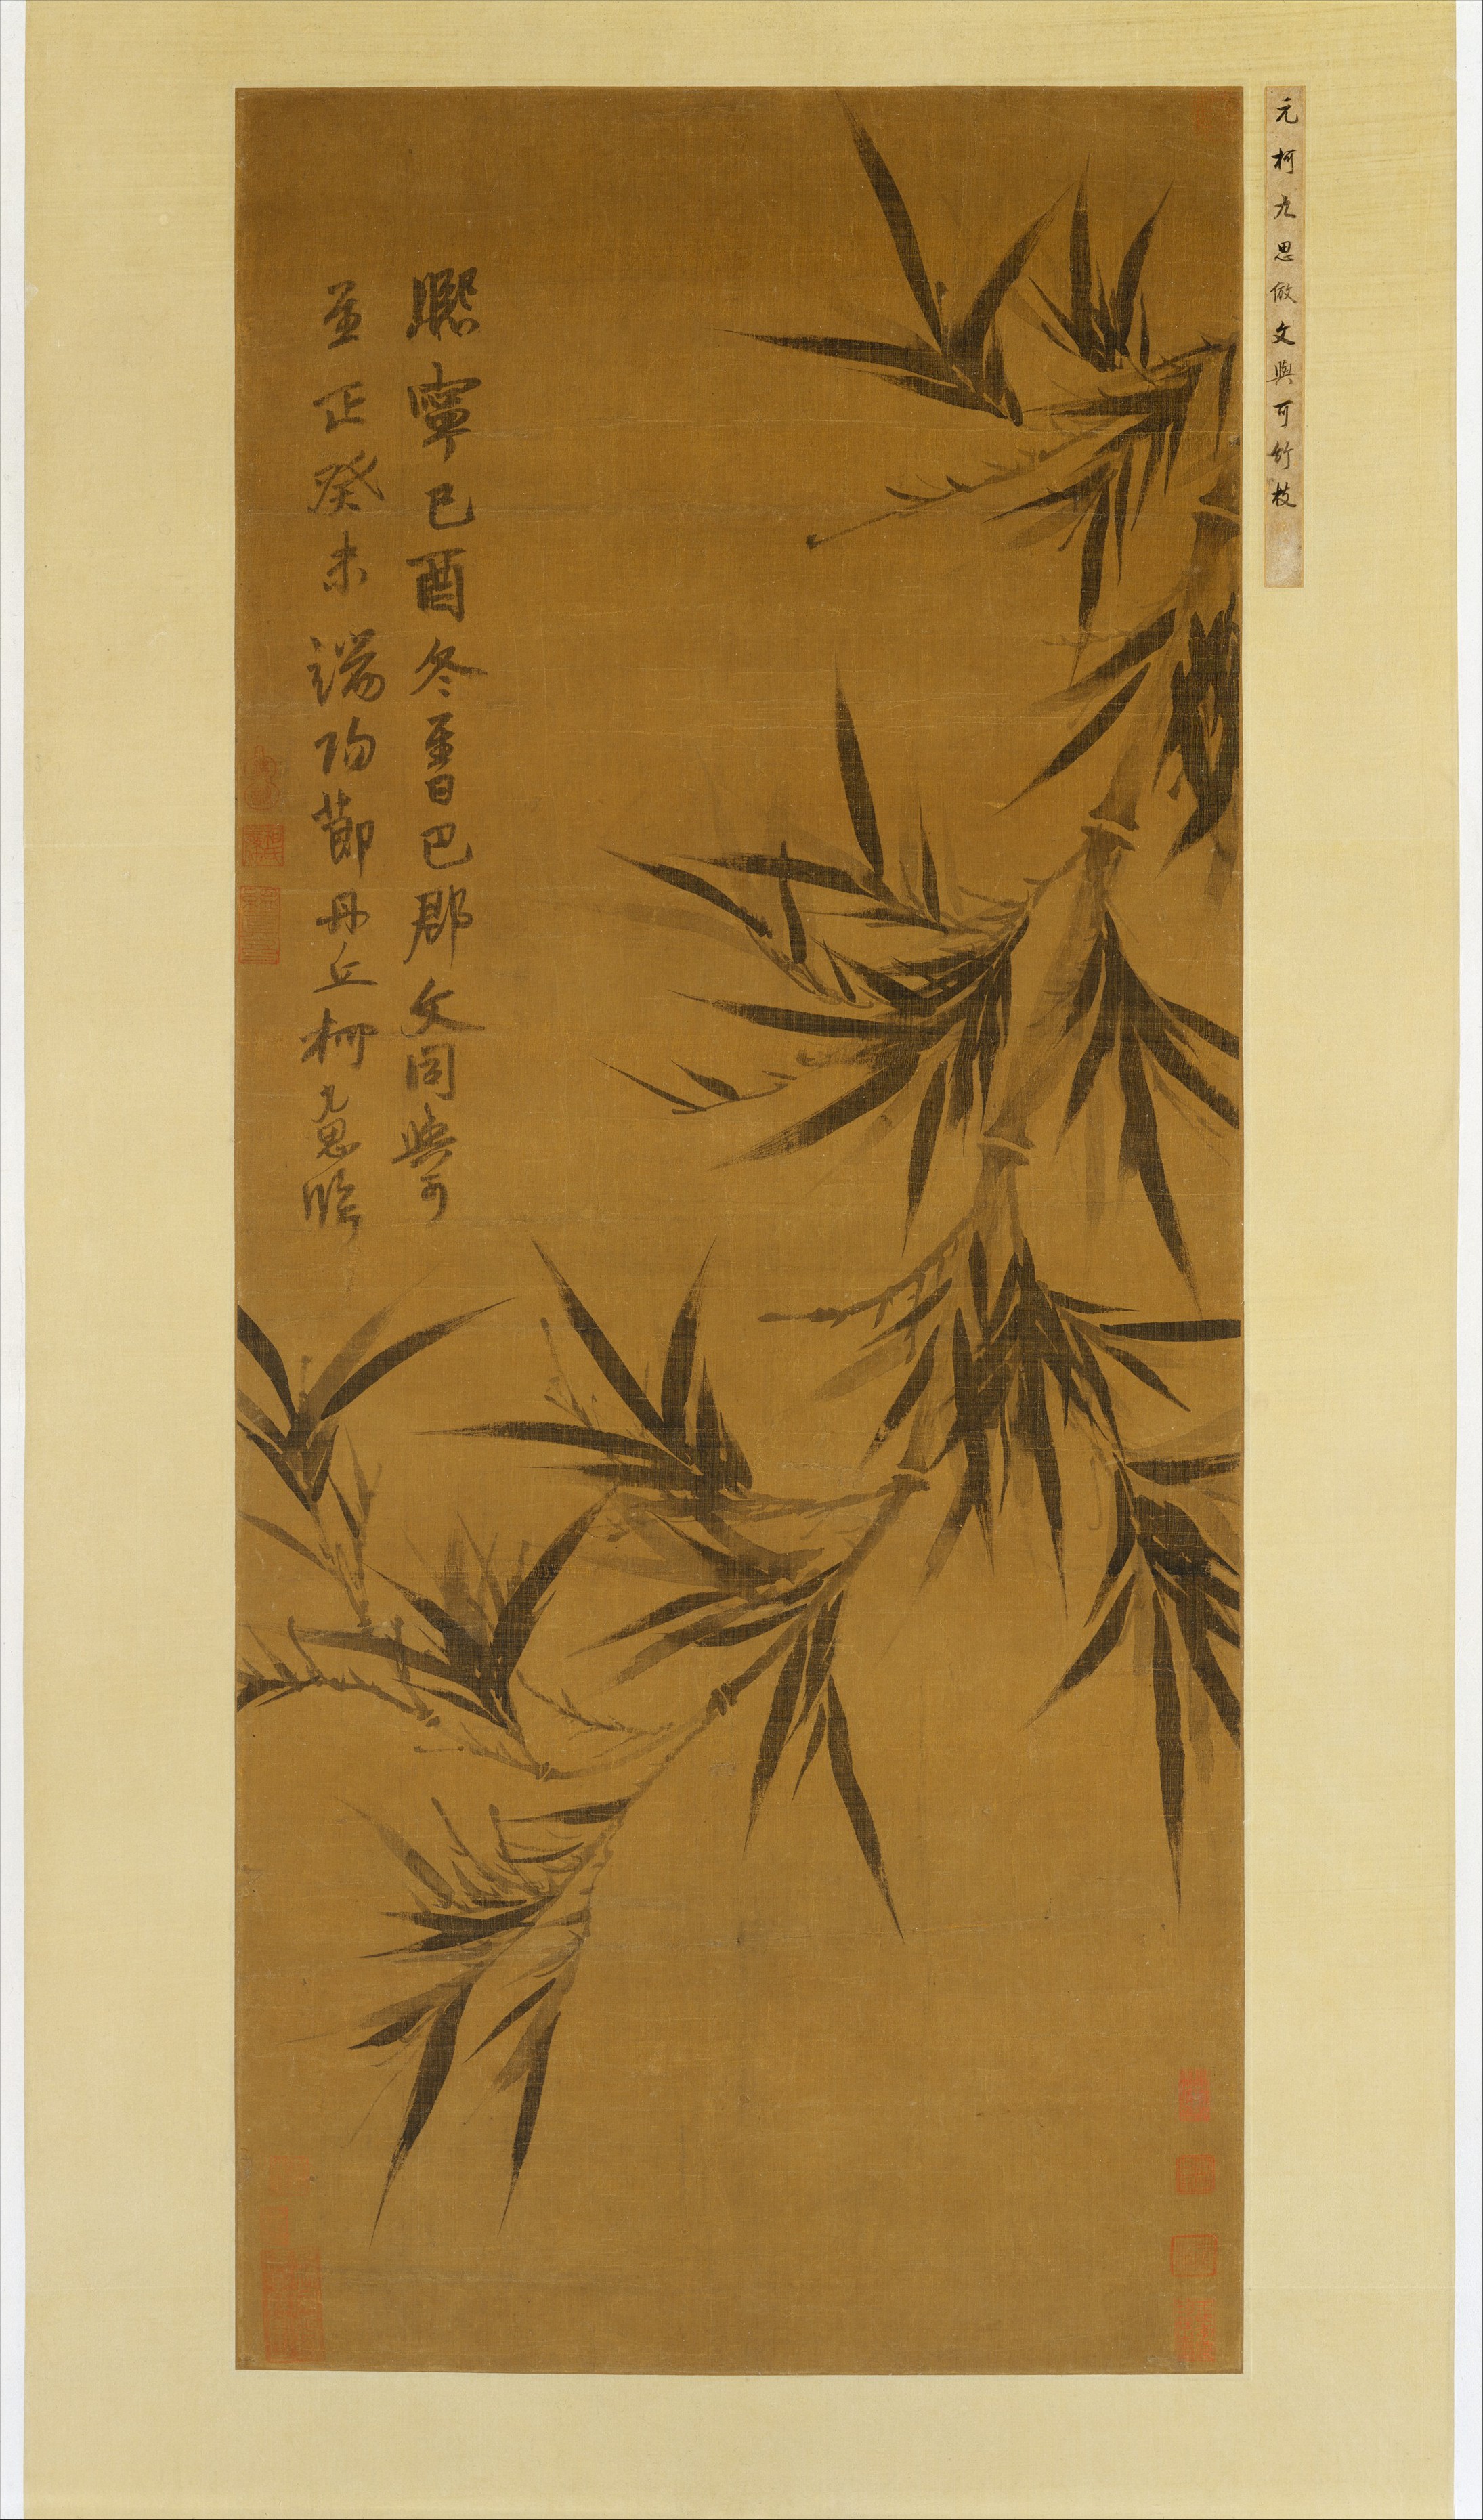 元柯九思倣文與可竹枝
熈寧己酉冬至日巴郡文同與可
至正癸未端陽節丹丘柯九思臨